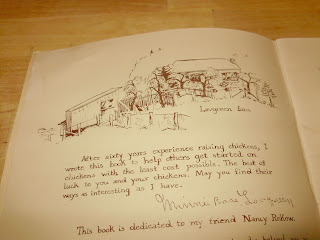 Lovgreen Inn
After sixty years experience raising chickens, I
wrote this book to help others get started on
chickens with the least cost possible. The best of
luck to you and your chickens. May you find their
ways as interesting as I have.
Minnie Rose
This book is dedicated to my friend Nancy Rekow.